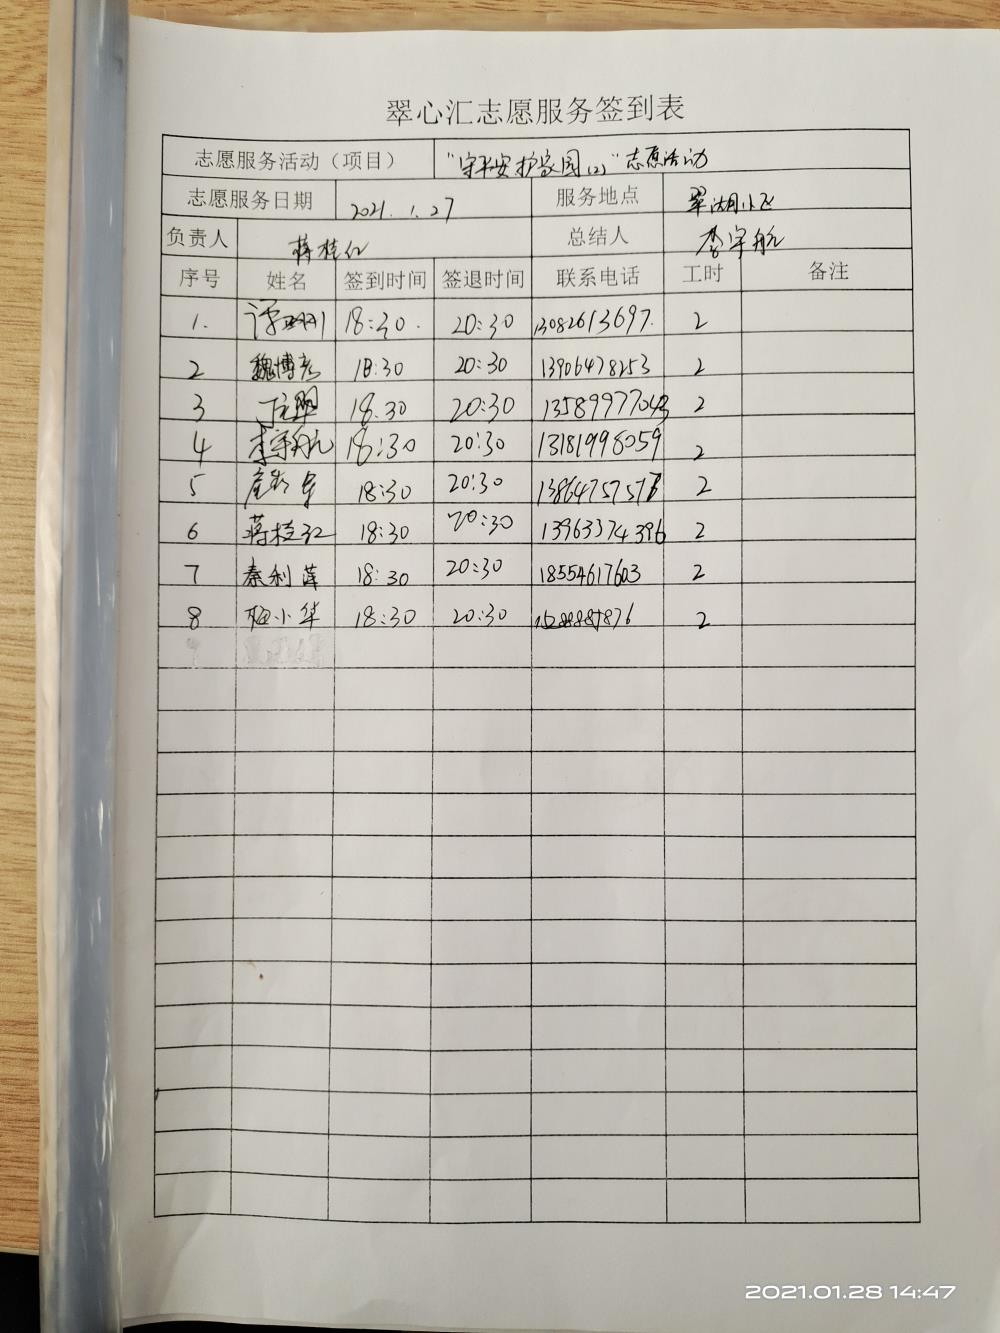 翠心汇志愿服务签到表
志愿服务活动（项目） "守平安护家园(2)"志愿活动
志愿服务日期 2021.1.27 服务地点 翠湖小区
负责人 蒋桂红 总结人 李宇航
序号 姓名 签到时间 签退时间 联系电话 工时 备注
1. 18:30. 20:30 13082613697. 2
2 魏博彦 18:30 20:30 13906478253 2
3 18.30 20:30 2
4 李宇航 18:30 20:30 13181998059 2
5 18:30 20:30 2
6 蒋桂红 18:30 20:30 13963374396 2
7 秦利萍 18:30 20:30 18554617603 2
8 梅小华 18:30 20:30 2
2021.01.28 14:47